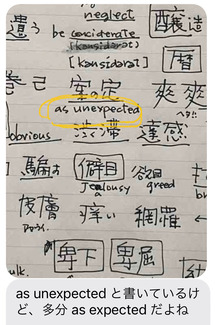 neglect
遣う be conciderate 醸造
[kənsídərət] 暦
案の定 爽爽
as unexpected
obvious 渋滞
騙す 僻目 greed
Jealousy
皮膚 痒い 網羅
卑下 卑屈
as unexpected と書いているけ
ど、多分 as expected だよね